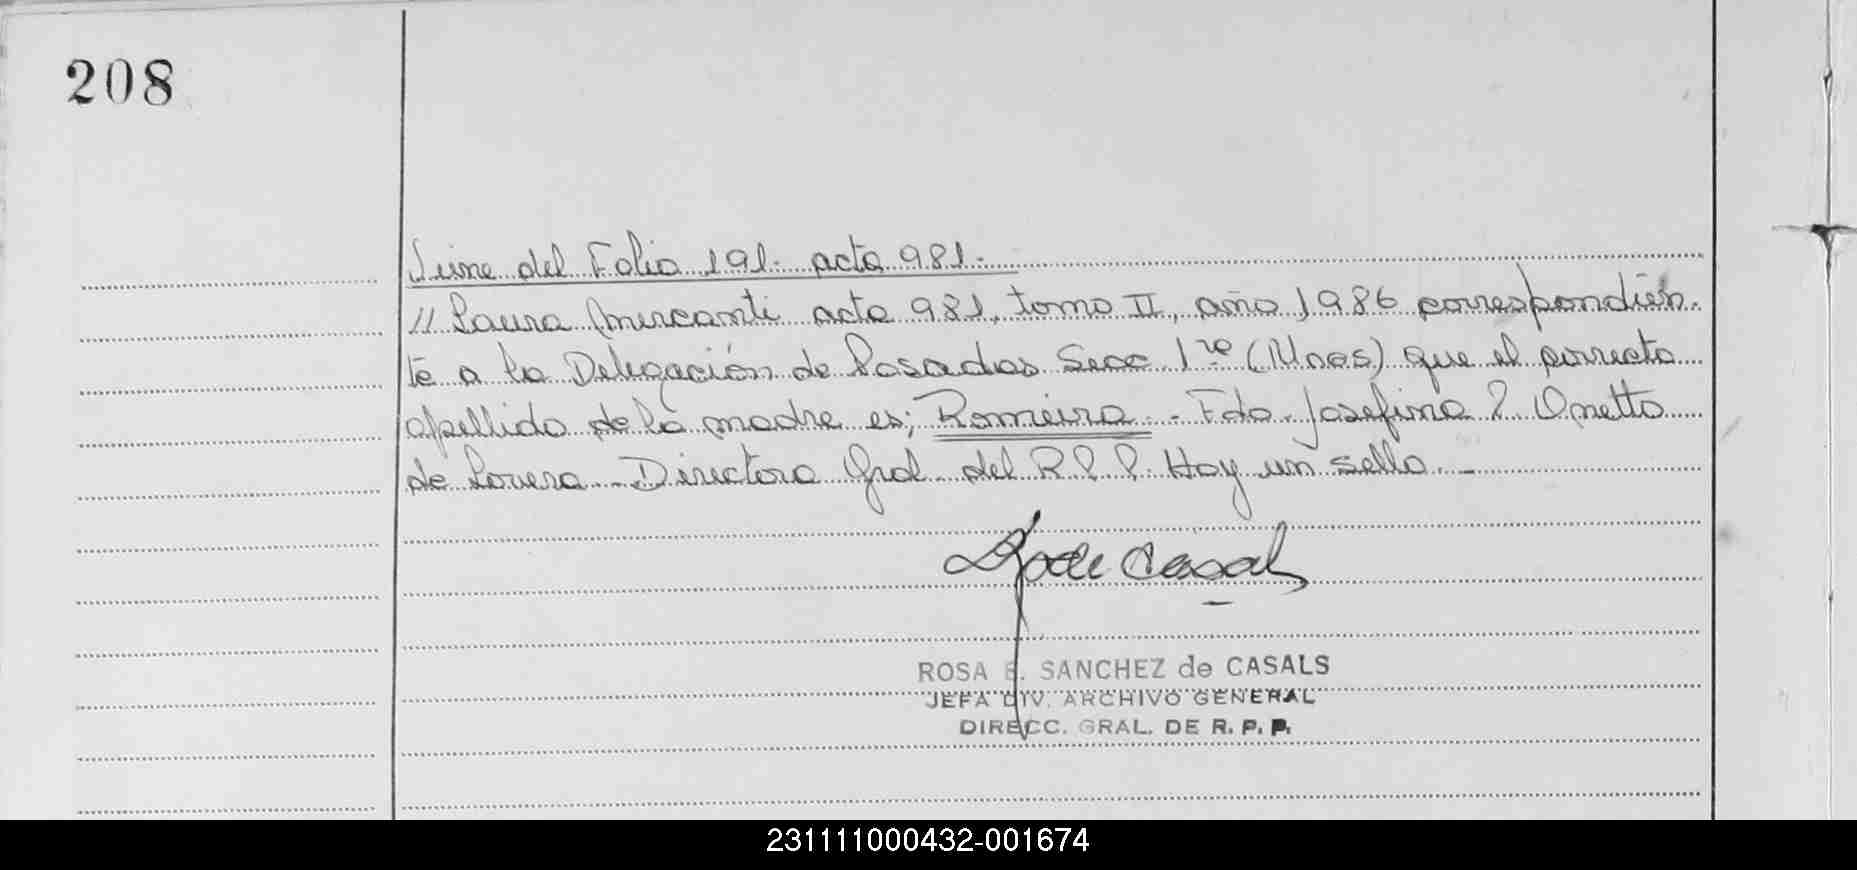 208
Viene del Folio 191. acta 981.-
// Laura Mercanti acta 981, tomo II, año 1986 correspondien-
te a la Delegación de Posadas Secc 1ra (Mnes) que el correcto
apellido de la madre es; Romeira.- Fdo. Josefina P. Onetto
de Lovera.- Directora Gral del R.P.P. Hay un sello.-
de Casals
ROSA E. SANCHEZ de CASALS
JEFA DIV. ARCHIVO GENERAL
DIRECC. GRAL. DE R. P. P.
231111000432-001674